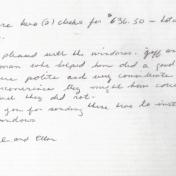 are two (2) checks for $636.50 — total
pleased with the windows. Jeff and
man who helped him did a good
were polite and very considerate
inconvenience they might have
they did not.
you for sending these two to inst
windows
and Ellen